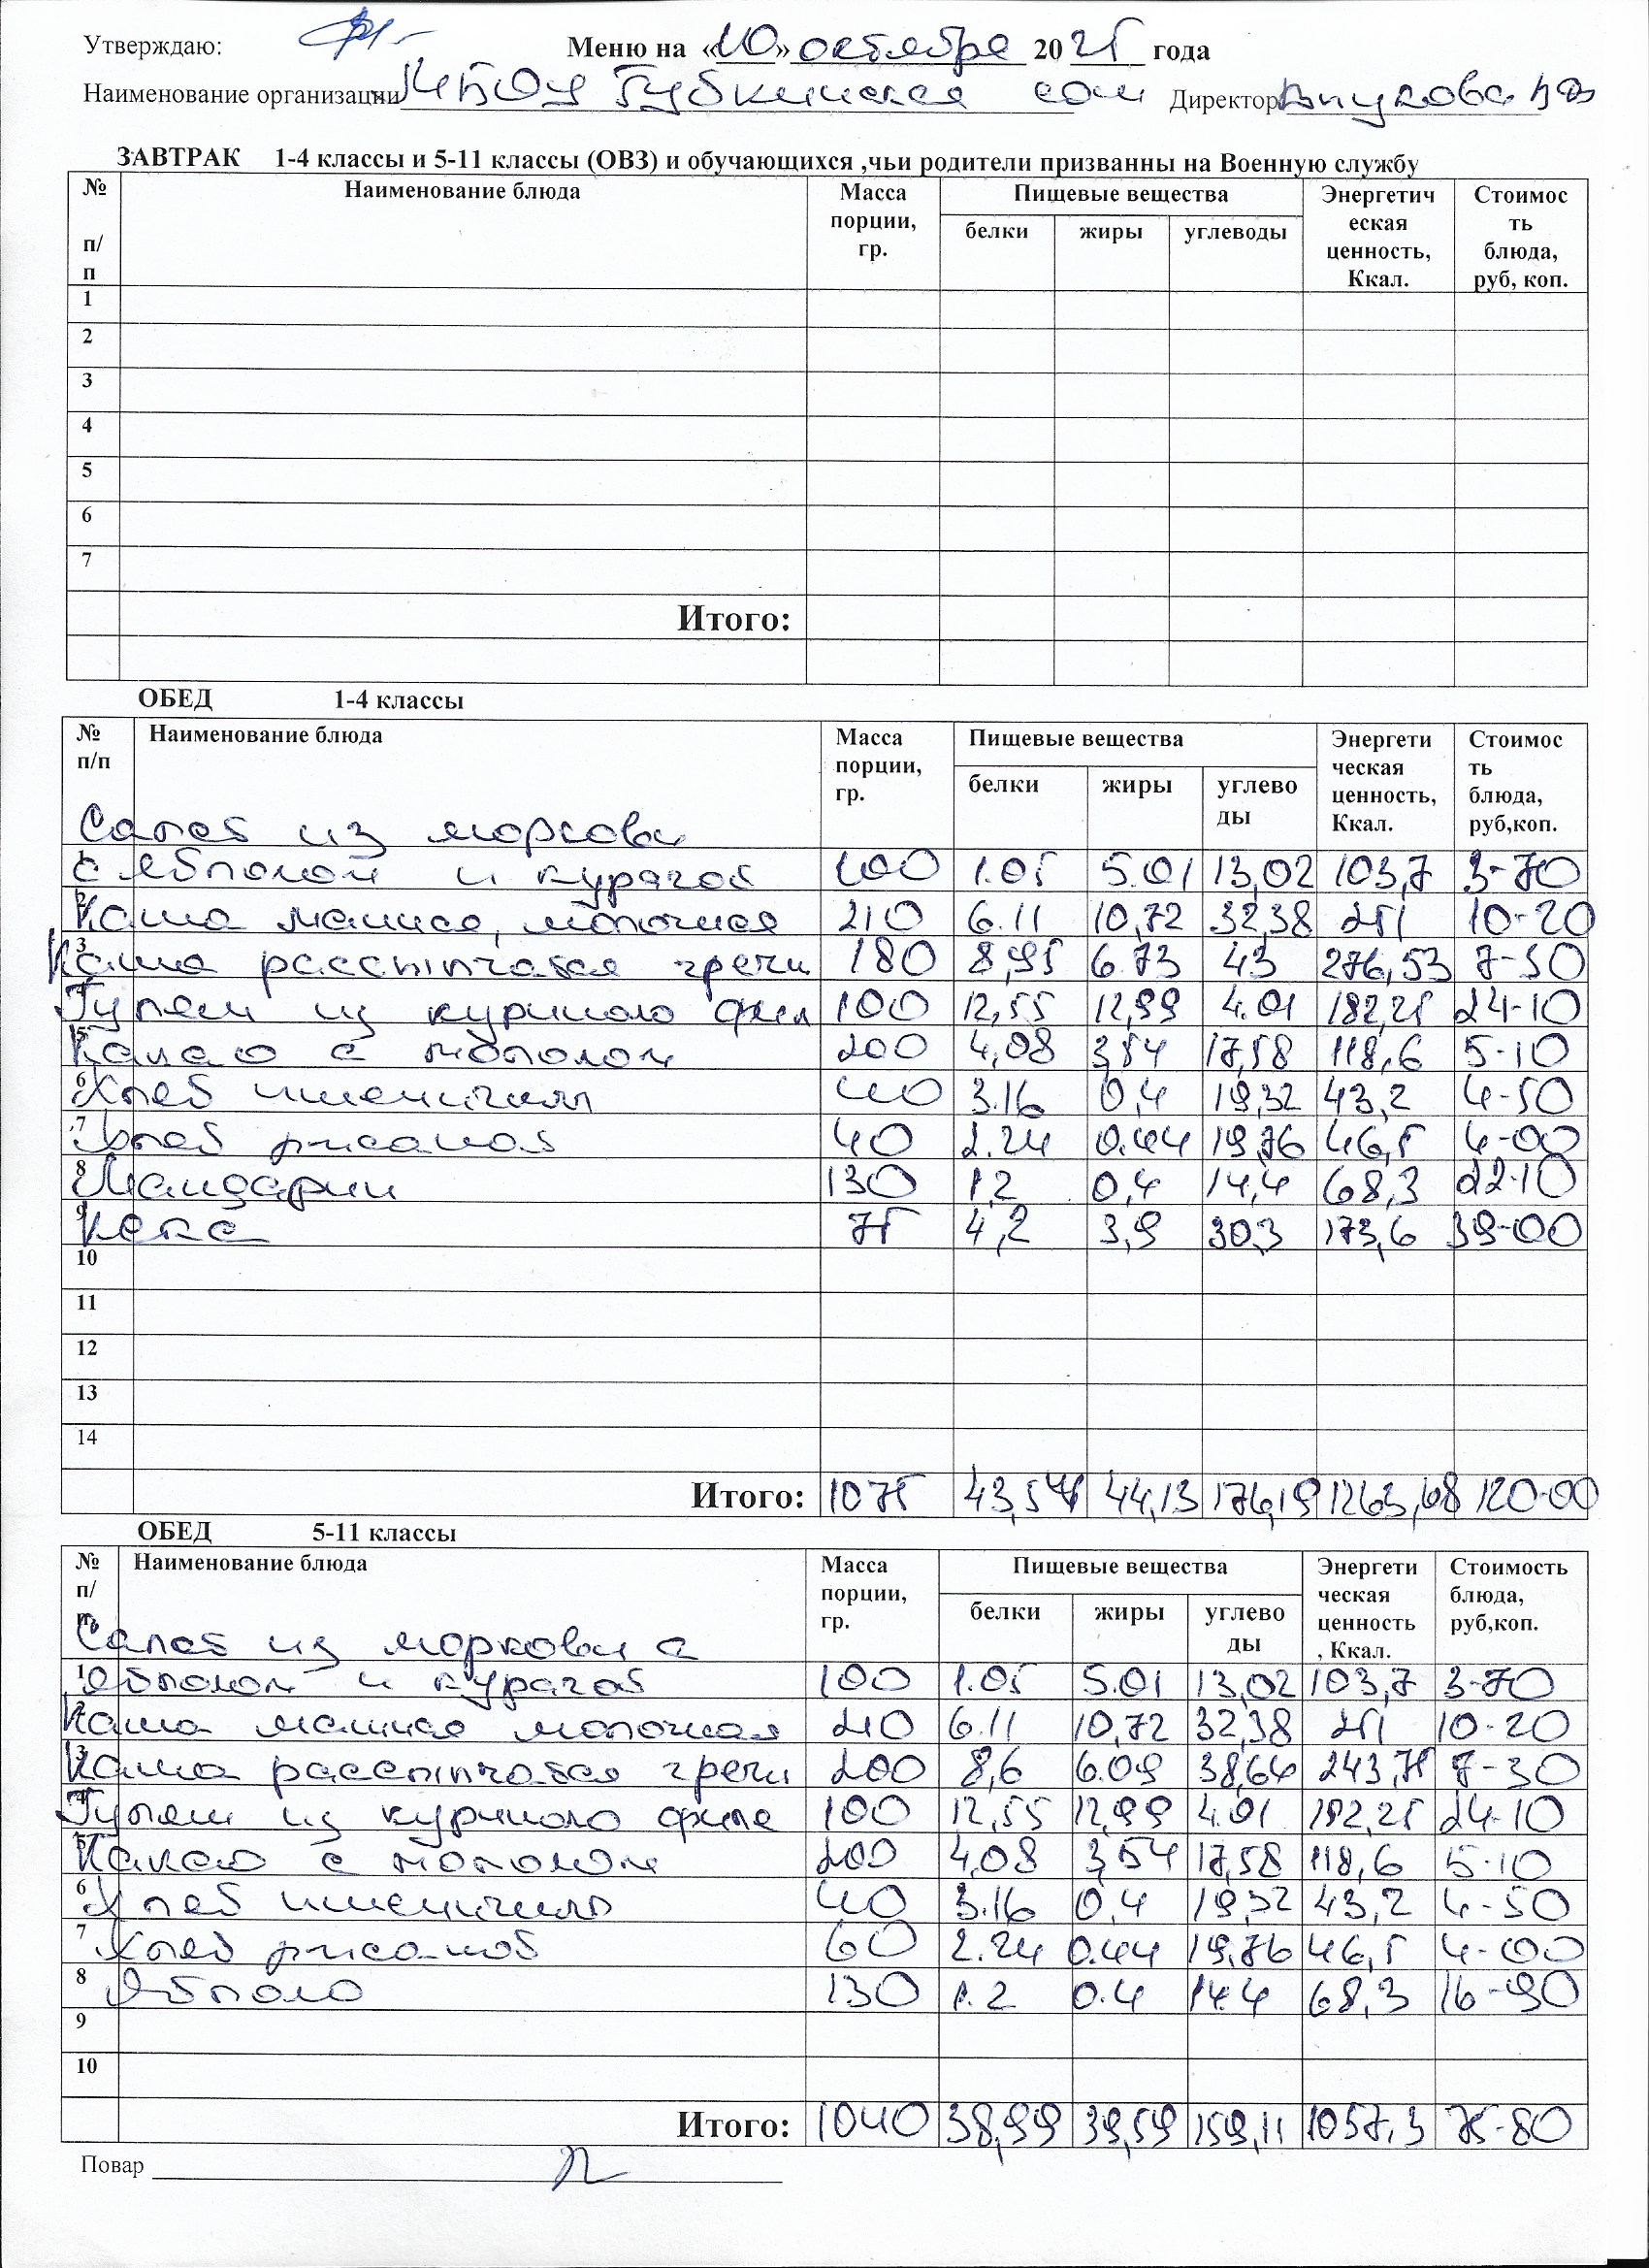 Утверждаю: Меню на «10» октября 2025 года
Наименование организации МБОУ Губкинская сош Директор
ЗАВТРАК 1-4 классы и 5-11 классы (ОВЗ) и обучающихся ,чьи родители призванны на Военную службу
№ п/п Наименование блюда Масса порции, гр. Пищевые вещества Энергетическая ценность, Ккал. Стоимость блюда, руб, коп.
белки жиры углеводы
1
2
3
4
5
6
7
Итого:
ОБЕД 1-4 классы
№ п/п Наименование блюда Масса порции, гр. Пищевые вещества Энергетическая ценность, Ккал. Стоимость блюда, руб,коп.
белки жиры углеводы
Салат из моркови
1 с яблоком и курагой 100 1.05 5.01 13,02 103,7 3-70
2 Каша манная, молочная 210 6.11 10,72 32,38 251 10-20
3 Каша рассыпчатая гречи 180 8,95 6.73 43 276,53 7-30
4 Гуляш из куриного фил 100 12,55 12,99 4.01 182,25 24-10
5 Какао с молоком 200 4,08 3,54 17,58 118,6 5-10
6 Хлеб пшеничный 40 3.16 0,4 19,32 43,2 4-50
7 Хлеб ржаной 40 2.24 0.44 19,76 46,5 4-00
8 Мандарин 130 1,2 0,4 14,4 68,3 22-10
9 Кекс 75 4,2 3,9 30,3 173,6 39-00
10
11
12
13
14
Итого: 1075 43,54 44,13 176,19 1263,68 120-00
ОБЕД 5-11 классы
№ п/п Наименование блюда Масса порции, гр. Пищевые вещества Энергетическая ценность, Ккал. Стоимость блюда, руб,коп.
белки жиры углеводы
Салат из моркови с
1 яблоком и курагой 100 1.05 5.01 13,02 103,7 3-70
2 Каша манная молочная 210 6.11 10,72 32,38 251 10-20
3 Каша рассыпчатая гречи 200 8,6 6.09 38,64 243,75 7-30
4 Гуляш из куриного филе 100 12,55 12,99 4.01 182,25 24-10
5 Какао с молоком 200 4,08 3,54 17,58 118,6 5-10
6 Хлеб пшеничный 40 3.16 0,4 19,32 43,2 4-50
7 Хлеб ржаной 60 2.24 0.44 19,76 46,5 4-00
8 Яблоко 130 1.2 0.4 14.4 68,3 16-90
9
10
Итого: 1040 38,99 39,59 159,11 1057,3 75-80
Повар